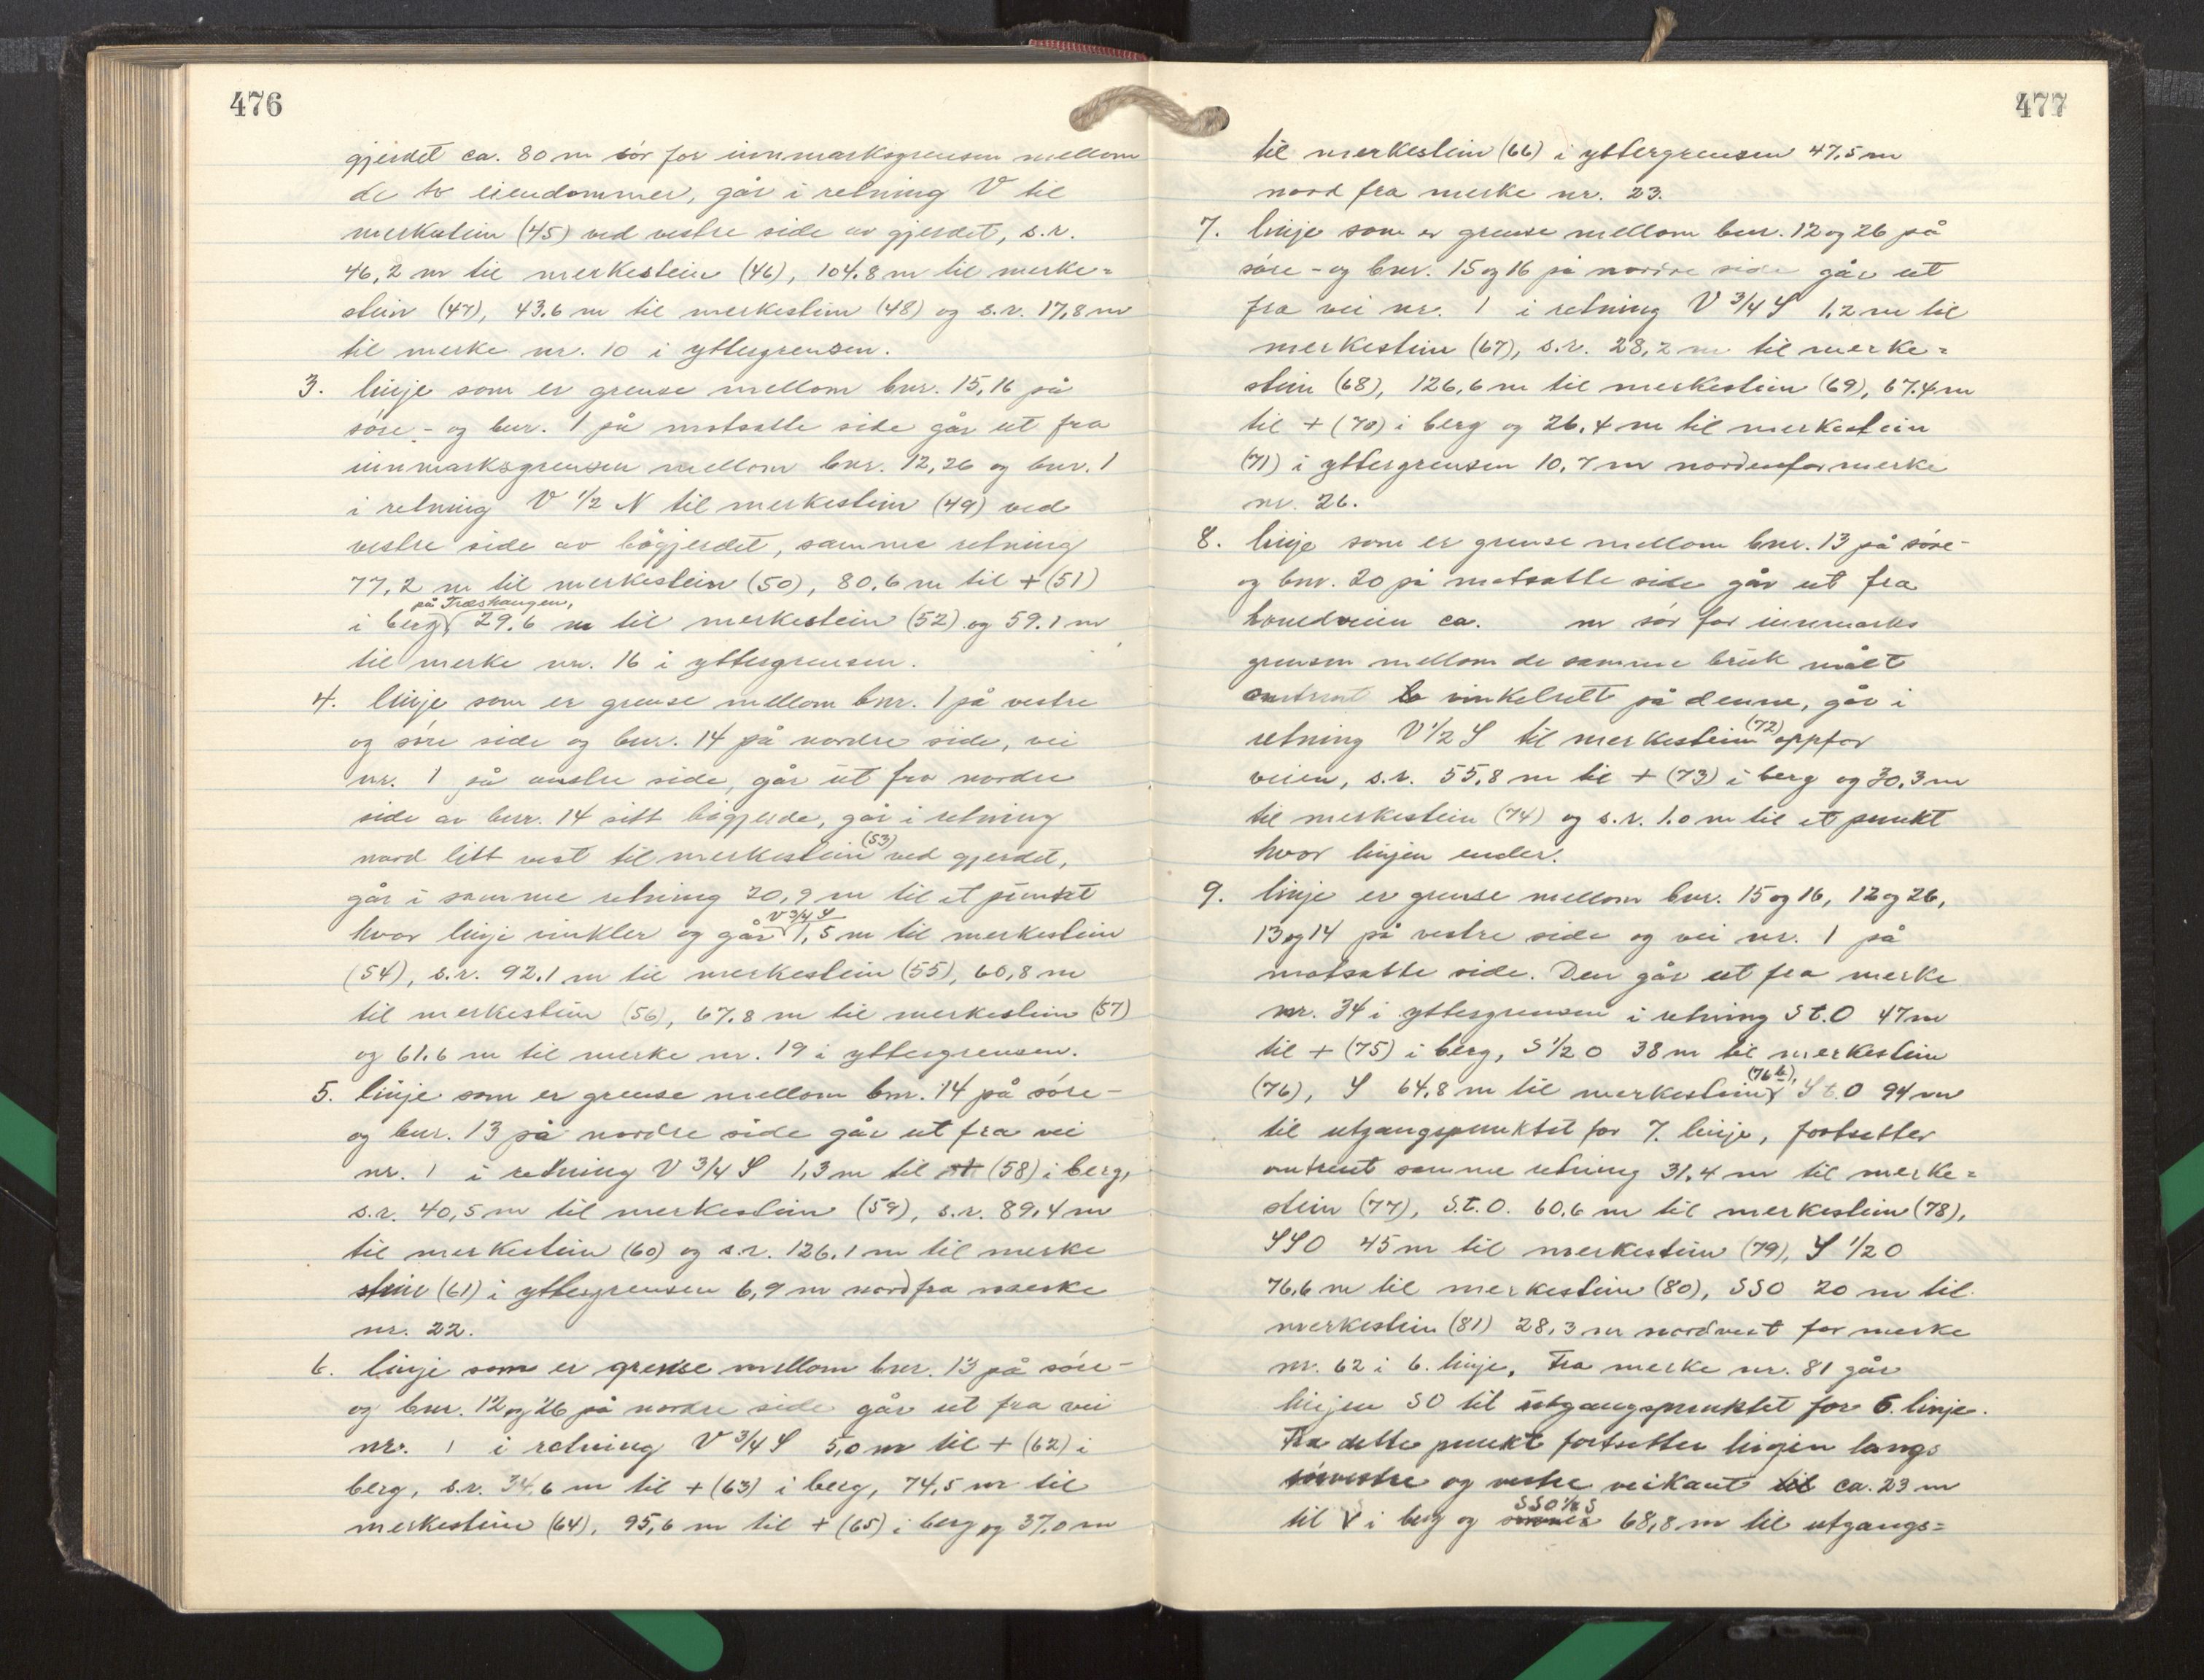 476
gjerdet ca. 80 m sör for innmarksgrensen mellom
de to eiendommer, går i retning V til
merkestein (45) ved vestre side av gjerdet, s.r.
46,2 m til merkestein (46), 104,8 m til merke=
stein (47), 43.6 m til merkestein (48) og s.r. 17,8 m
til merke nr. 10 i yttergrensen.
3. linje som er grense mellom bnr. 15,16 på
søre - og bnr. 1 på motsatte side går ut fra
innmarksgrensen mellom bnr. 12,26 og bnr. 1
i retning V 1/2 N til merkestein (49) ved
vestre side av bögjerdet, samme retning
77,2 m til merkestein (50), 80.6 m til + (51)
på Træshaugen,
i berg 29.6 m til merkestein (52) og 59.1 m
til merke nr. 16 i yttergrensen.
4. linje som er grense mellom bnr. 1 på vestre
og søre side og bnr. 14 på nordre side, vei
nr. 1 på austre side, går ut fra nordre
side av bnr. 14 sitt bögjerde, går i retning
nord litt vest til merkestein (53) ved gjerdet,
går i samme retning 20,9 m til et punkt
hvor linje vinkler og går V 3/4 S 1,5 m til merkestein
(54), s.r. 92.1 m til merkestein (55), 60,8 m
til merkestein (56), 67.8 m til merkestein (57)
og 61.6 m til merke nr. 19 i yttergrensen.
5. linje som er grense mellom bnr. 14 på søre -
og bnr. 13 på nordre side går ut fra vei
nr. 1 i retning V 3/4 S 1,3 m til + (58) i berg,
s.r. 40,5 m til merkestein (59), s.r. 89,4 m
til merkestein (60) og s.r. 126.1 m til merke
stein (61) i yttergrensen 6,9 m nord fra merke
nr. 22.
6. linje som er grense mellom bnr. 13 på søre -
og bnr. 12 og 26 på nordre side går ut fra vei
nr. 1 i retning V 3/4 S 5,0 m til + (62) i
berg, s.r. 34,6 m til + (63) i berg, 74,5 m til
merkestein (64), 95,6 m til + (65) i berg og 37,0 m
477
til merkestein (66) i yttergrensen 47,5 m
nord fra merke nr. 23.
7. linje som er grense mellom bnr. 12 og 26 på
søre - og bnr. 15 og 16 på nordre side går ut
fra vei nr. 1 i retning V 3/4 S 1,2 m til
merkestein (67), s.r. 28,2 m til merke=
stein (68), 126,6 m til merkestein (69), 67.4 m
til + (70) i berg og 26.4 m til merkestein
(71) i yttergrensen 10,7 m nordenfor merke
nr. 26.
8. linje som er grense mellom bnr. 13 på søre-
og bnr. 20 på motsatte side går ut fra
hovedveien ca. m sör for innmarks
grensen mellom de samme bruk målt
omtrent vinkelrett på denne, går i
retning V 1/2 S til merkestein (72) oppfor
veien, s.r. 55,8 m til + (73) i berg og 30,3 m
til merkestein (74) og s.r. 1.0 m til et punkt
hvor linjen ender.
9. linje er grense mellom bnr. 15 og 16, 12 og 26,
13 og 14 på vestre side og vei nr. 1 på
motsatte side. Den går ut fra merke
nr. 34 i yttergrensen i retning S t. O 47 m
til + (75) i berg, S 1/2 O 38 m til merkestein
(76), S 64,8 m til merkestein (76b), S t. O 94 m
til utgangspunktet for 7. linje, fortsetter
omtrent samme retning 31.4 m til merke=
stein (77), S.t.O. 60.6 m til merkestein (78),
SSO 45 m til merkestein (79), S 1/2 O
76,6 m til merkestein (80), SSO 20 m til
merkestein (81) 28,3 m nordvest for merke
nr. 62 i 6. linje. Fra merke nr. 81 går
linjen SO til utgangspunktet for 6. linje.
Fra dette punkt fortsetter linjen langs
sörvestre og vestre veikant til ca. 23 m
til V i berg og SSO 1/2 S 68,8 m til utgangs=